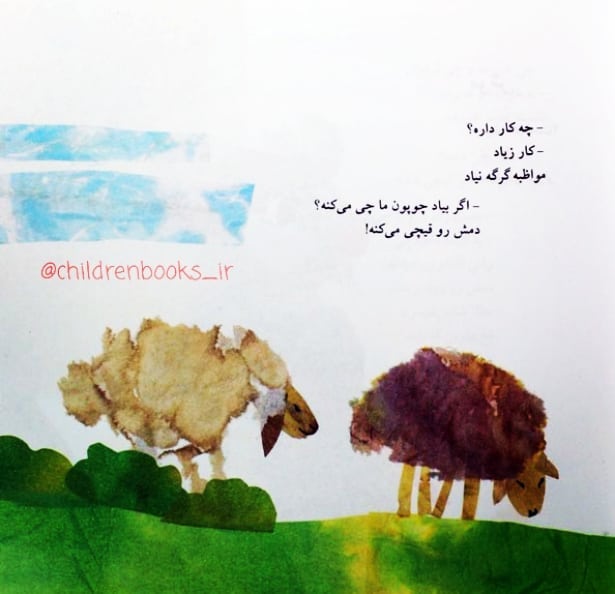 - چه کار داره؟
- کار زیاد
مواظبه گرگه نیاد
- اگر بیاد چوپون ما چی می‌کنه؟
دمش رو قیچی می‌کنه!
@childrenbooks_ir